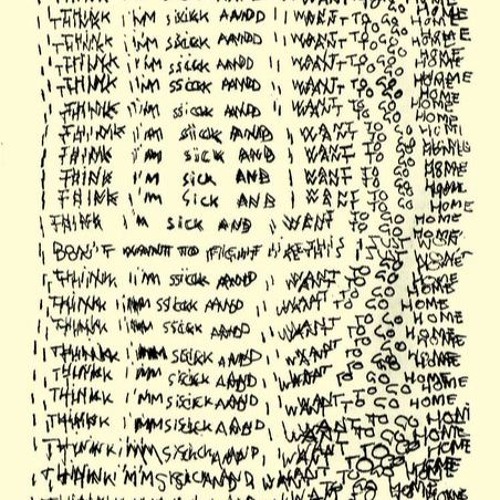 I THINK I'M SICK AND I WANT TO GO HOME
I THINK I'M SICK AND I WANT TO GO HOME
I THINK I'M SICK AND I WANT TO GO HOME
I THINK I'M SICK AND I WANT TO GO HOME
I THINK I'M SICK AND I WANT TO GO HOME
I THINK I'M SICK AND I WANT TO GO HOME
I THINK I'M SICK AND I WANT TO GO HOME
I THINK I'M SICK AND I WANT TO GO HOME
I THINK I'M SICK AND I WANT TO GO HOME
I THINK I'M SICK AND I WANT TO GO HOME
I THINK I'M SICK AND I WENT TO GO HOME
I DON'T WANT TO FIGHT THIS I WON'T
I THINK I'M SICK AND I WANT TO GO HOME
I THINK I'M SICK AND I WANT TO GO HOME
I THINK I'M SICK AND I WANT TO GO HOME
I THINK I'M SICK AND I WANT TO GO HOME
I THINK I'M SICK AND I WANT TO GO HOME
I THINK I'M SICK AND I WANT TO GO HOME
I THINK I'M SICK AND I WANT TO GO HOME
I THINK I'M SICK AND I WANT TO GO HOME
I THINK I'M SICK AND I WANT TO GO HOME